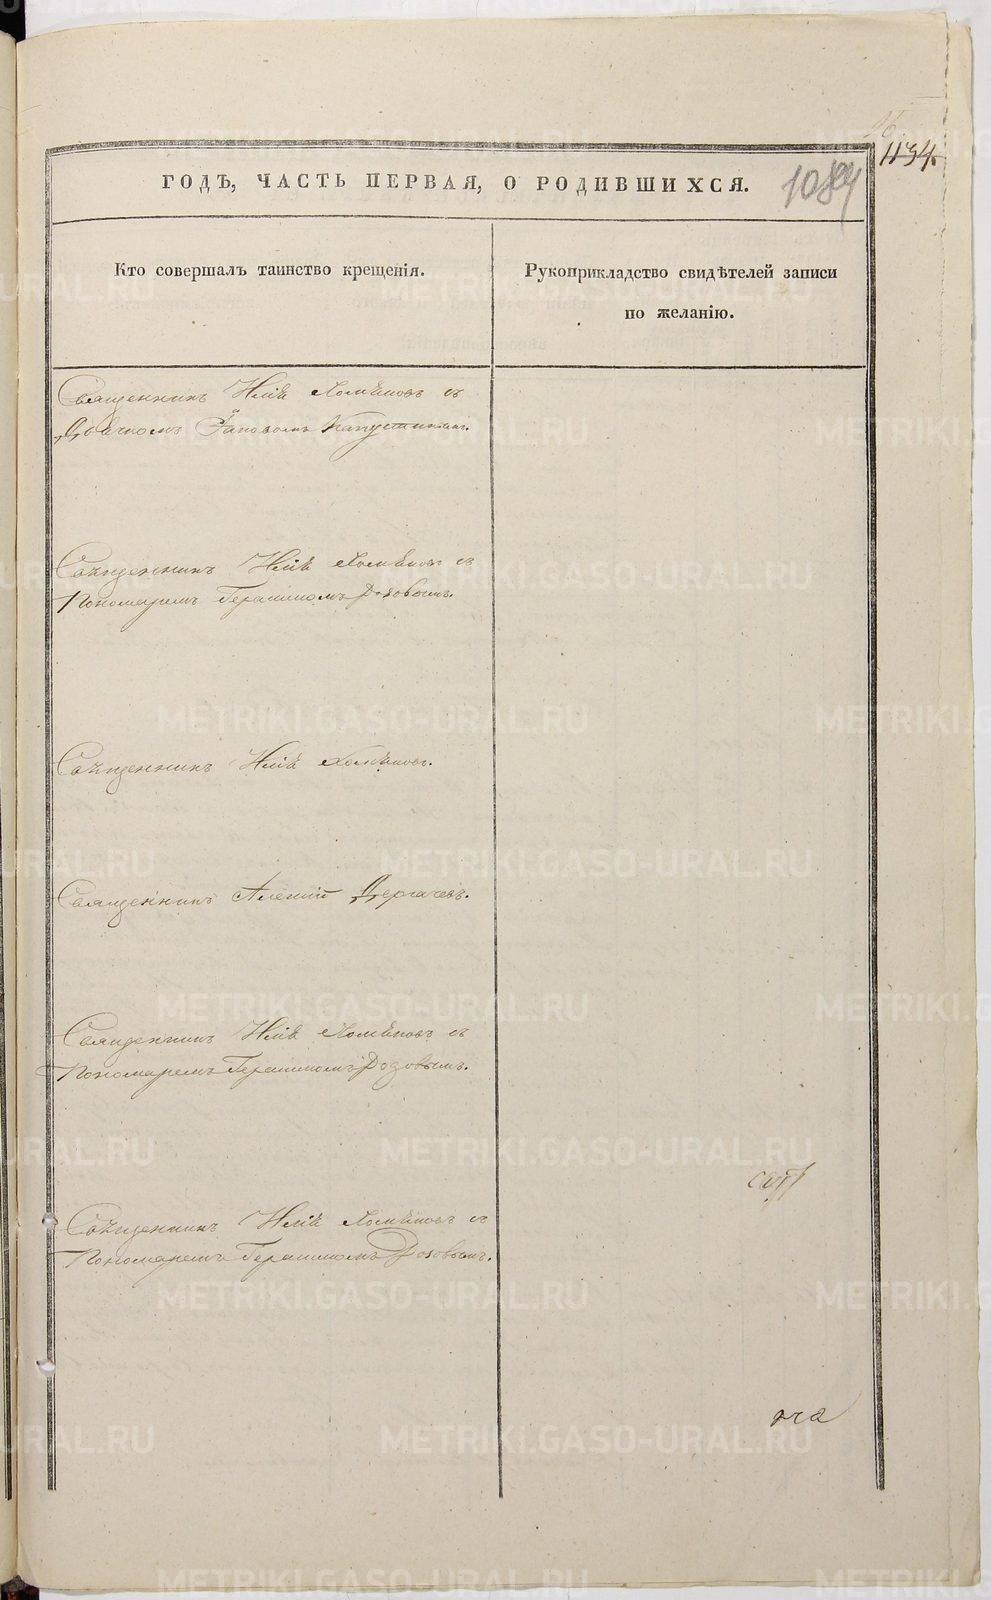 1134.
ГОДЪ, ЧАСТЬ ПЕРВАЯ, О РОДИВШИХСЯ.
1084
Кто совершалъ таинство крещенія.
Рукоприкладство свидѣтелей записи
по желанію.
Священникъ Илія Хомяковъ съ
Дьячкомъ Іаковомъ Капустинымъ.
Священникъ Илія Хомяковъ съ
Пономаремъ Герасимомъ Розовымъ.
Священникъ Илія Хомяковъ.
Священникъ Алексій Дергачевъ.
Священникъ Илія Хомяковъ съ
Пономаремъ Герасимомъ Розовымъ.
Священникъ Илія Хомяковъ съ
Пономаремъ Герасимомъ Розовымъ.
METRIKI.GASO-URAL.RU